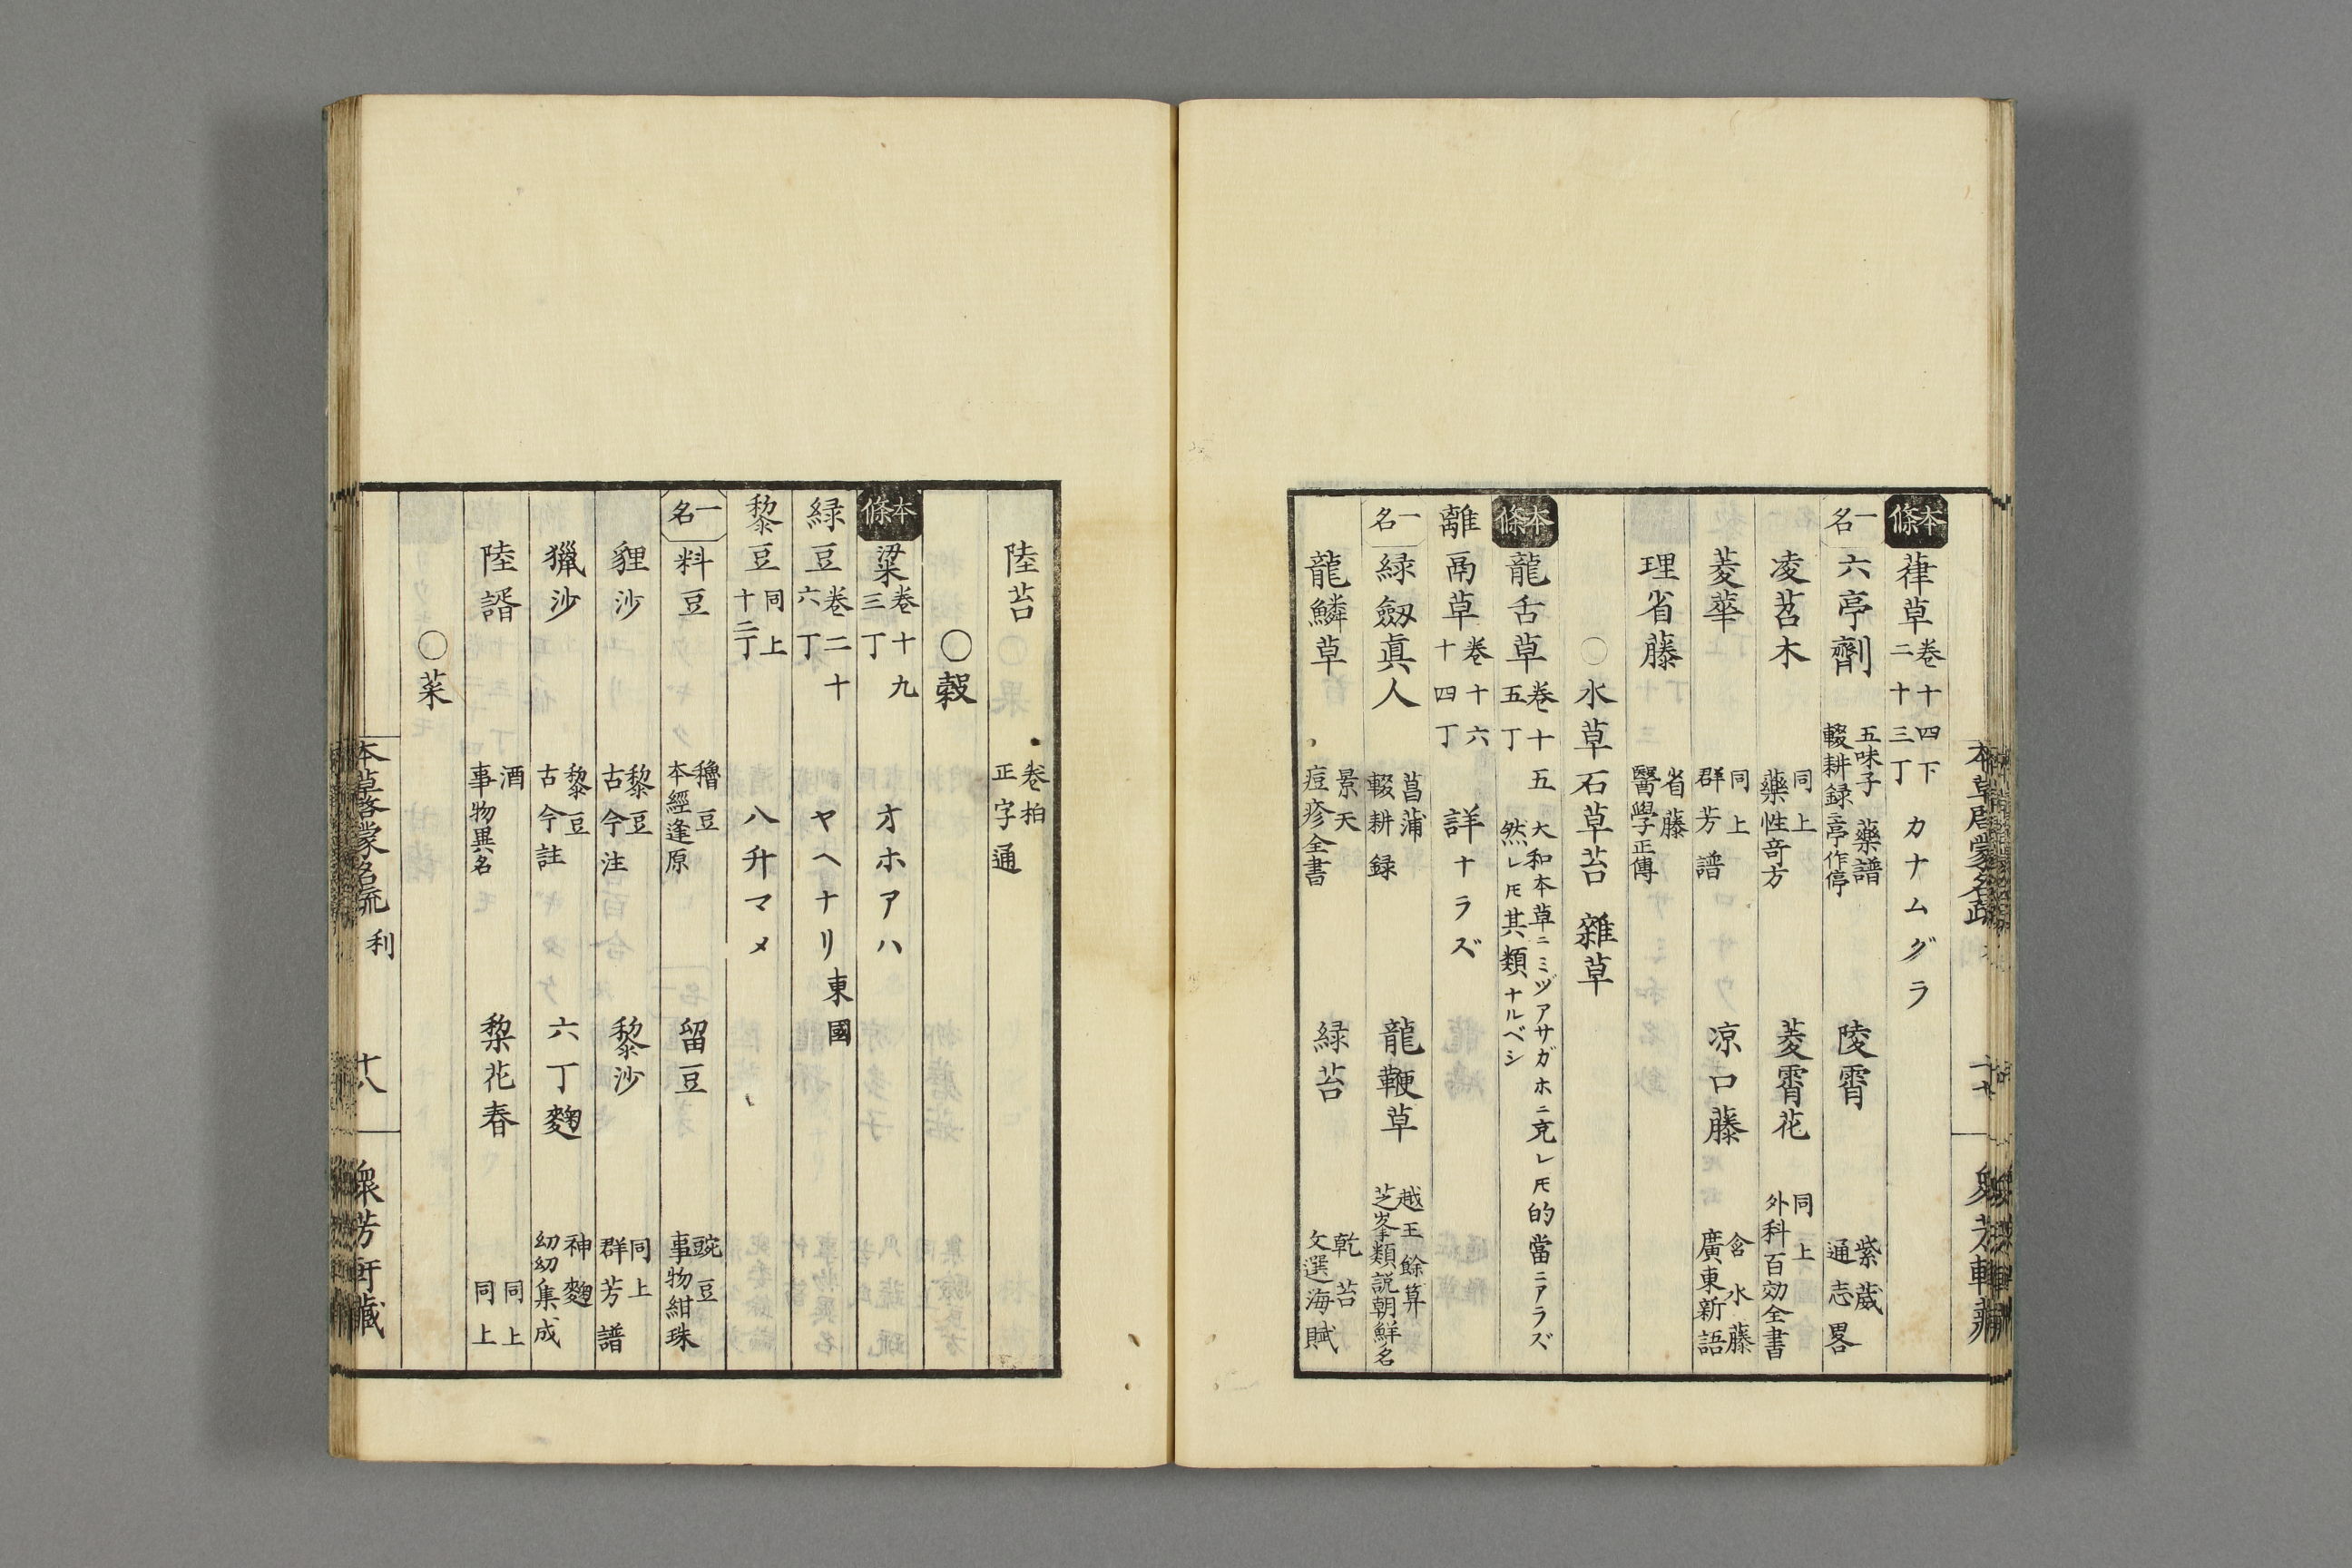 本草啓蒙名疏
本條 葎草 卷十四下 二十三丁 カナムグラ
一名 六亭劑 五味子 藥譜 輟耕録亭作停 陵霄 紫葳 通志畧
凌苕木 同上 藥性竒方 菱霄花 同上 外科百効全書
菱華 同上 群芳譜 凉口藤 含水藤 廣東新語
理省藤 省藤 醫學正傳
○水草 石草 苔 雜草
本條 龍舌草 卷十五 五丁 大和本草ニミヅアサガホニ充レ𪜈的當ニアラズ 然レ𪜈其類ナルベシ
離鬲草 卷十六 十四丁 詳ナラズ
一名 緑劔眞人 菖蒲 輟耕録 龍鞭草 越王餘算 芝峯類説朝鮮名
龍鱗草 景天 痘疹全書 緑苔 乾苔 文選海賦
陸苔 卷柏 正字通
○穀
本條 粱 卷十九 三丁 オホアハ
緑豆 卷二十 六丁 ヤヘナリ東國
黎豆 同上 十二丁 八升マメ
一名 料豆 穭豆 本經逢原 留豆 豌豆 事物紺珠
貍沙 黎豆 古今注 黎沙 同上 群芳譜
獵沙 黎豆 古今註 六丁麴 神麴 幼幼集成
陸諝 酒 事物異名 梨花春 同上 同上
○菜
本草啓蒙名疏 利 十八 衆芳軒藏